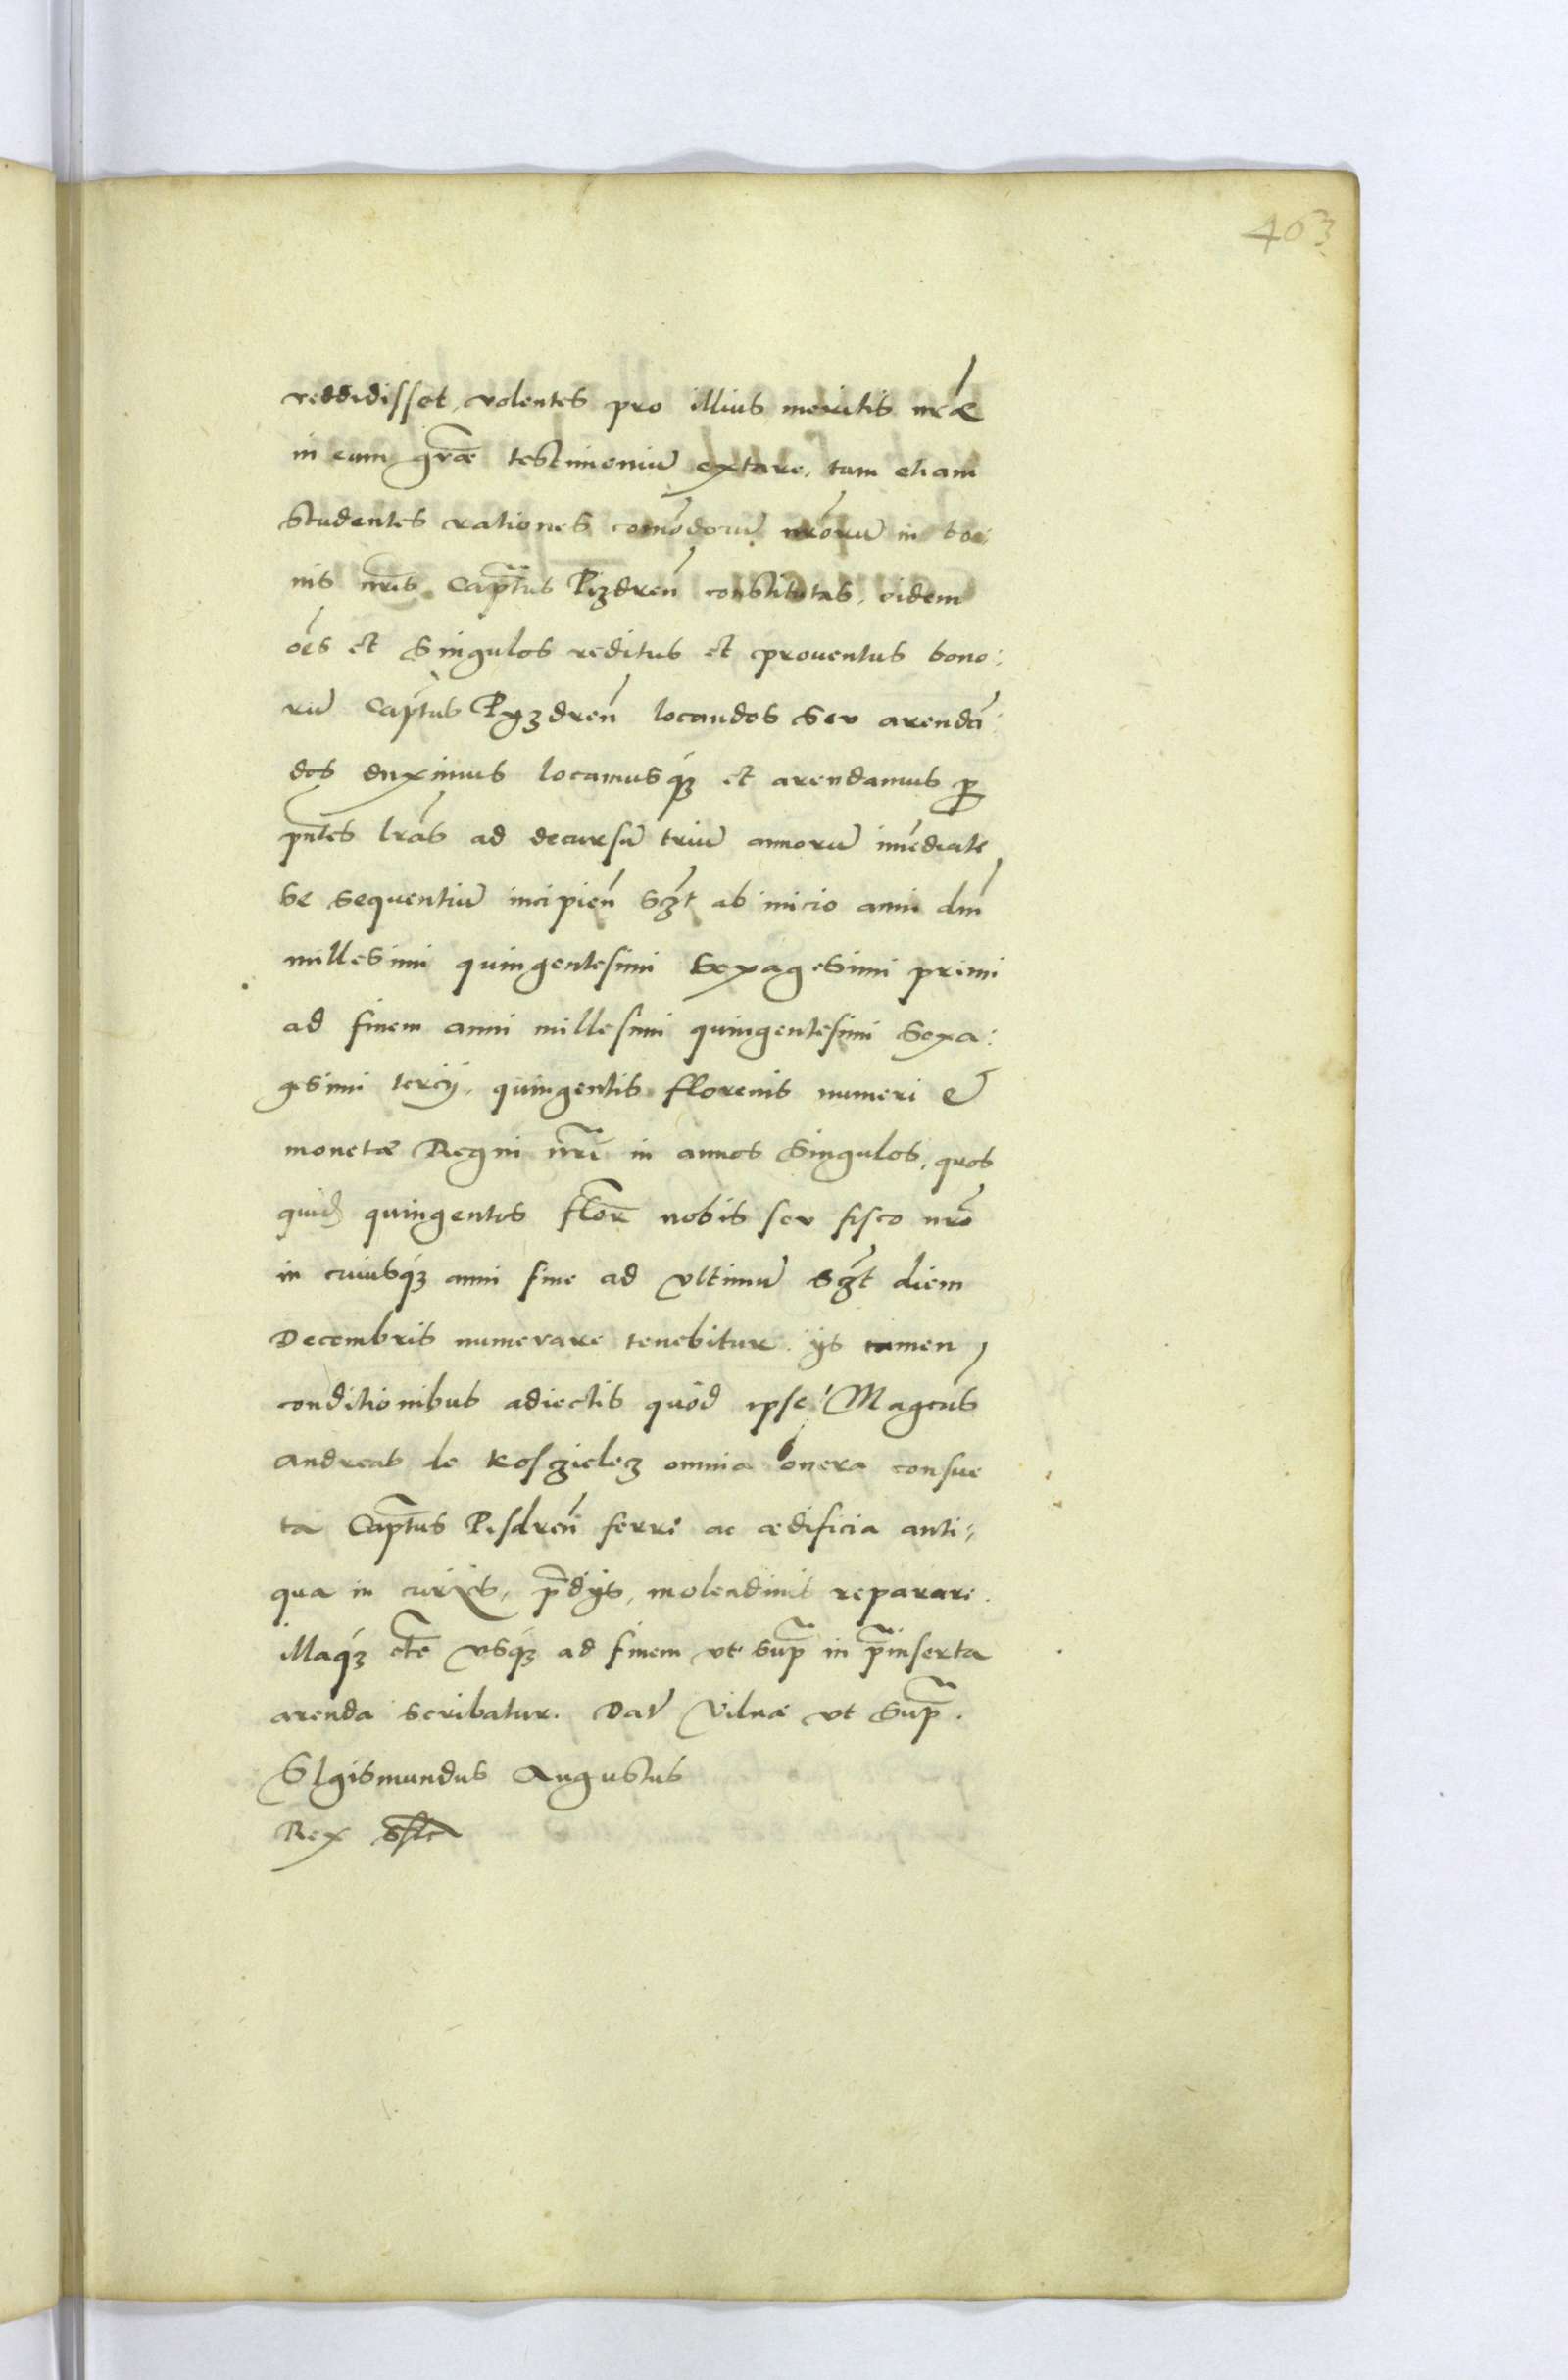 463
reddidisset, volentes pro illius meritis nr̃æ
in eum grãæ testimoniũ extare, tum etiam
studentes rationes com̃odorũ nr̃orũ in bo:
nis nr̃is Capt̃us Pizdreñ constitutas, eidem
oẽs et singulos reditus et prouentus bono:
rũ Cap̃tus Pyzdreñ locandos seu arendã:
dos duximus locamusq3 et arendamus ꝑ
pñtes lrãs ad decursũ triũ annorũ im̃ediate
se sequentiũ incipieñ sc3t ab inicio anni dñi
millesimi quingentesimi sexagesimi primi
ad finem anni millesimi quingentesimi sexa:
gesimi tercij, quingentis florenis numeri et
monetæ Regni nr̃i in annos singulos, quos
quid̃ quingentos flor̃ nobis seu fisco nr̃o
in cuiusq3 anni fine ad vltimũ sc3t diem
Decembris numerare tenebitur. ijs tamen
conditionibus adiectis quod ipse Mag̃cus
Andreas de Kosczielecz omnia onera consue
ta Capt̃us Pisdreñ ferre ac ædificia anti:
qua in curijs, p̃dijs, molendinis reparare.
illaq3 et̃c vsq3 ad finem vt sup̃ in p̃inserta
arenda scribatur. Dat̃ Vilnæ vt sup̃.
Sigismundus Augustus
Rex sst